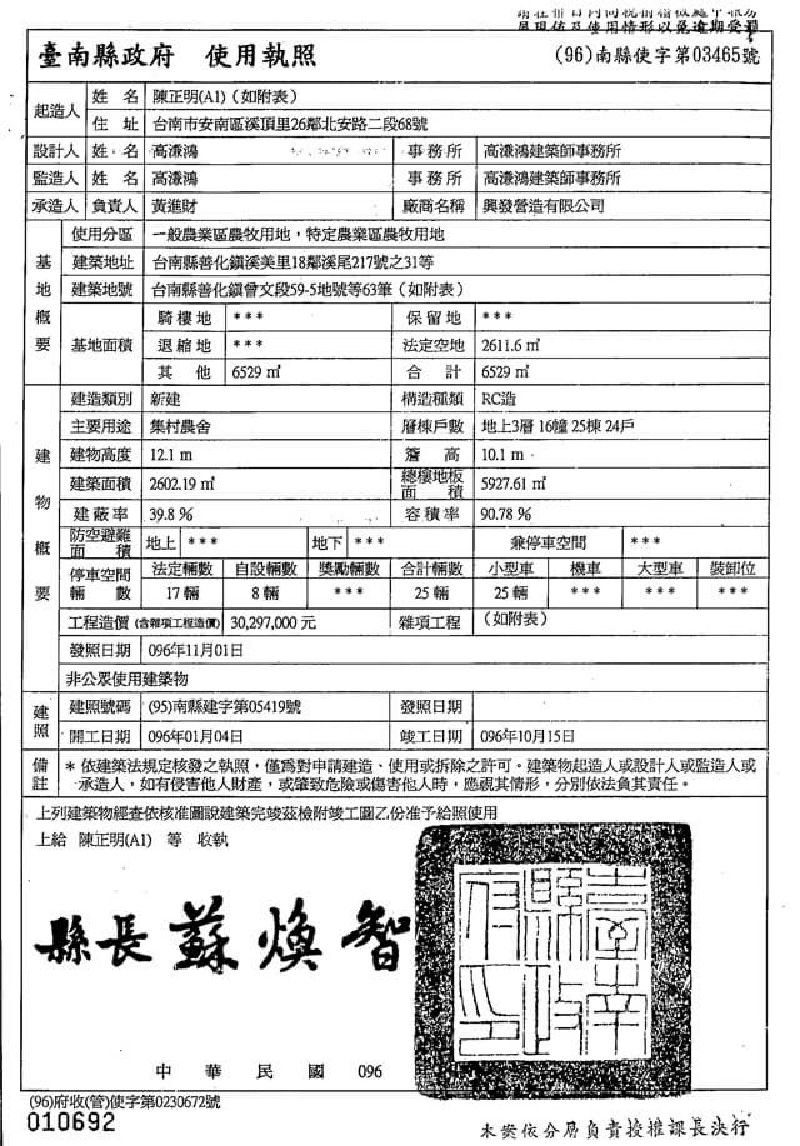 展現況及使用情形以免逾期受罰
臺南縣政府 使用執照
(96)南縣使字第03465號
起造人 姓名 陳正明(A1)（如附表）
住址 台南市安南區溪頂里26鄰北安路二段68號
設計人 姓名 高溓鴻 事務所 高溓鴻建築師事務所
監造人 姓名 高溓鴻 事務所 高溓鴻建築師事務所
承造人 負責人 黃進財 廠商名稱 興發營造有限公司
基地概要 使用分區 一般農業區農牧用地，特定農業區農牧用地
建築地址 台南縣善化鎮溪美里18鄰溪尾217號之31等
建築地號 台南縣善化鎮曾文段59-5地號等63筆（如附表）
基地面積 騎樓地 *** 保留地 ***
退縮地 *** 法定空地 2611.6 ㎡
其他 6529 ㎡ 合計 6529 ㎡
建物概要 建造類別 新建 構造種類 RC造
主要用途 集村農舍 層棟戶數 地上3層 16幢 25棟 24戶
建物高度 12.1 m 簷高 10.1 m
建築面積 2602.19 ㎡ 總樓地板面積 5927.61 ㎡
建蔽率 39.8 % 容積率 90.78 %
防空避難面積 地上 *** 地下 *** 兼停車空間 ***
停車空間輛數 法定輛數 自設輛數 獎勵輛數 合計輛數 小型車 機車 大型車 裝卸位
17 輛 8 輛 *** 25 輛 25 輛 *** *** ***
工程造價 (含雜項工程造價) 30,297,000 元 雜項工程 （如附表）
發照日期 096年11月01日
非公眾使用建築物
建照 建照號碼 (95)南縣建字第05419號 發照日期
開工日期 096年01月04日 竣工日期 096年10月15日
備註 * 依建築法規定核發之執照，僅為對申請建造、使用或拆除之許可。建築物起造人或設計人或監造人或
承造人，如有侵害他人財產，或肇致危險或傷害他人時，應視其情形，分別依法負其責任。
上列建築物經查依核准圖說建築完竣茲檢附竣工圖乙份准予給照使用
上給 陳正明(A1) 等 收執
縣長 蘇煥智
臺南縣政府之印
中華民國 096
(96)府收(管)使字第0230672號
010692
本案依分層負責授權課長決行